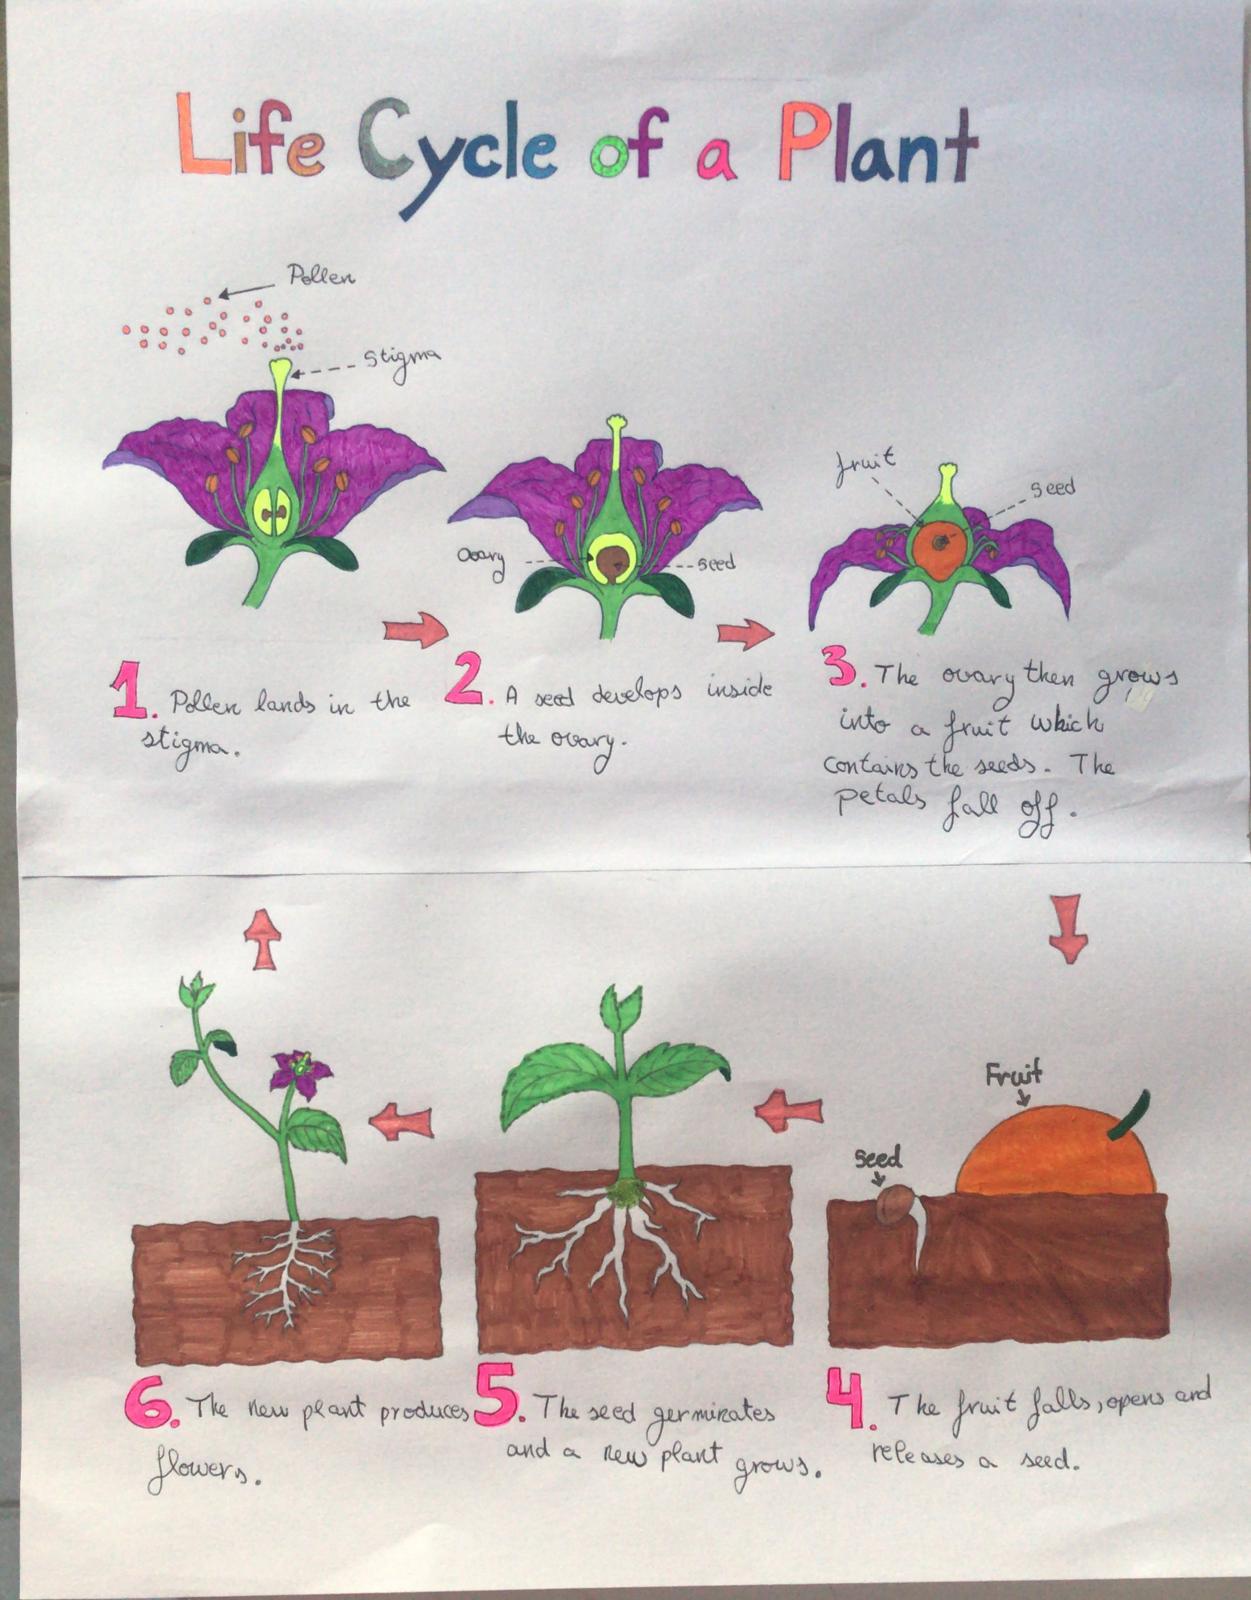 Life Cycle of a Plant
Pollen
Stigma
Ovary
seed
fruit
seed
1. Pollen lands in the
stigma.
2. A seed develops inside
the ovary.
3. The ovary then grows
into a fruit which
contains the seeds. The
petals fall off.
Fruit
Seed
6. The new plant produces
flowers.
5. The seed germinates
and a new plant grows.
4. The fruit falls, opens and
releases a seed.